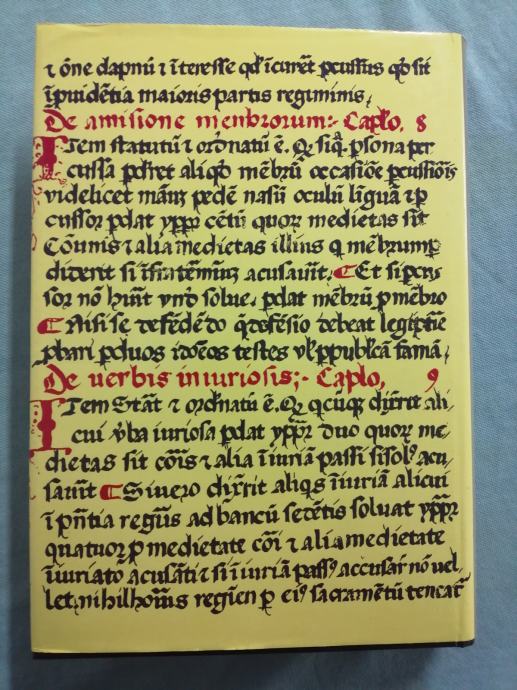 ⁊ õne dapnũ ⁊ ĩteresse qđ ĩcurẽt pcussus qđ sit
ĩpuidẽtia maioris partis regiminis,
De amisione menbrorum:- Caplo, 8
Item statutũ ⁊ ordnatũ ẽ. Qz siq̃. psona per
cussa pdret aliqđ mẽbrũ occasiõe pcussiõis
videlicet manũ, pedẽ nasũ oculũ lĩguã ⁊ p
cussor pdat yppa cẽtũ quoꝝ medietas sit
Cõunis ⁊ alia medietas illius q mẽbrum p
diderit si
acusaunt, Et si pcus
sor nõ solue, pdat mẽbrũ p mẽbro
Nisi se defẽdẽdo q̃ defẽsio debeat legiptie
pbari p duos idõeos testes ul' p publicã famã,
De uerbis iniuriosis;- Caplo, 9
Item Stat̃ ⁊ ordnatũ ẽ. Qz qcũqz dixerit ali,
cui ũba iuriosa pdat yppa duo quoꝝ me,
dietas sit cõis ⁊ alia ĩiuriã passi si solꝰ acu,
saunt Si uero dixerit aliqs ĩiuriã alicui
ĩ pñtia regĩs ad bancũ sedẽtis soluat yppa
quatuor p medietate cõi ⁊ alia medietate
ĩiuriato acusãti ⁊ si ĩiuriã passꝰ accusar̃ nõ uel,
let, nihilhoĩs regiẽn p eiꝰ sacramẽtũ tencat̃